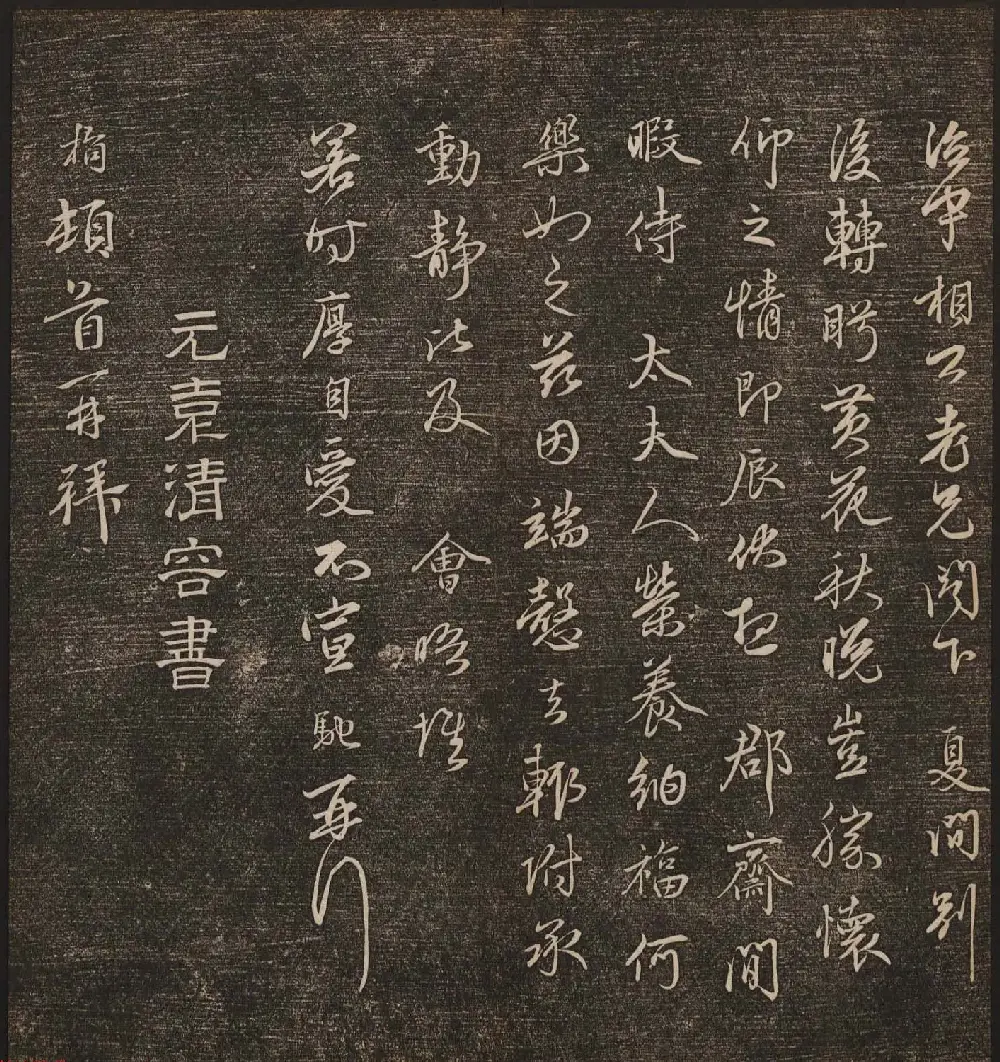 治中相公老兄閤下夏間別
後轉盻黃花秋晚豈勝懷
仰之情即辰伏想郡齋間
暇侍太夫人榮養納福何
樂如之茲因端愨去輒附承
動靜比及會晤惟
若時厚自愛不宣馳再行
元袁清容書
桷頓首再拜